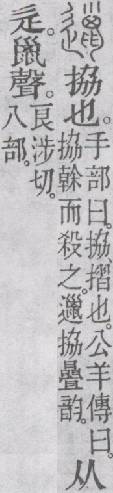 邋拹也。
手部曰。拹、摺也。公羊傳曰。
拹榦而殺之。邋拹疊韵。
从
辵。巤聲。
良涉切。
八部。